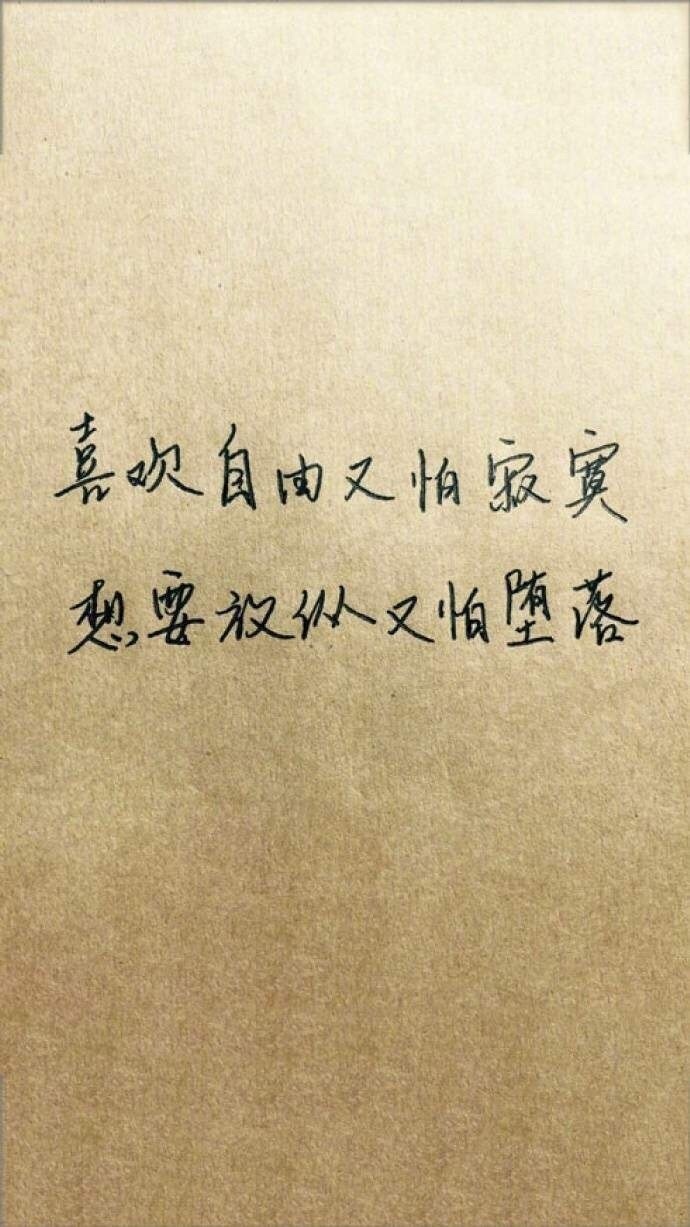 喜欢自由又怕寂寞
想要放纵又怕堕落